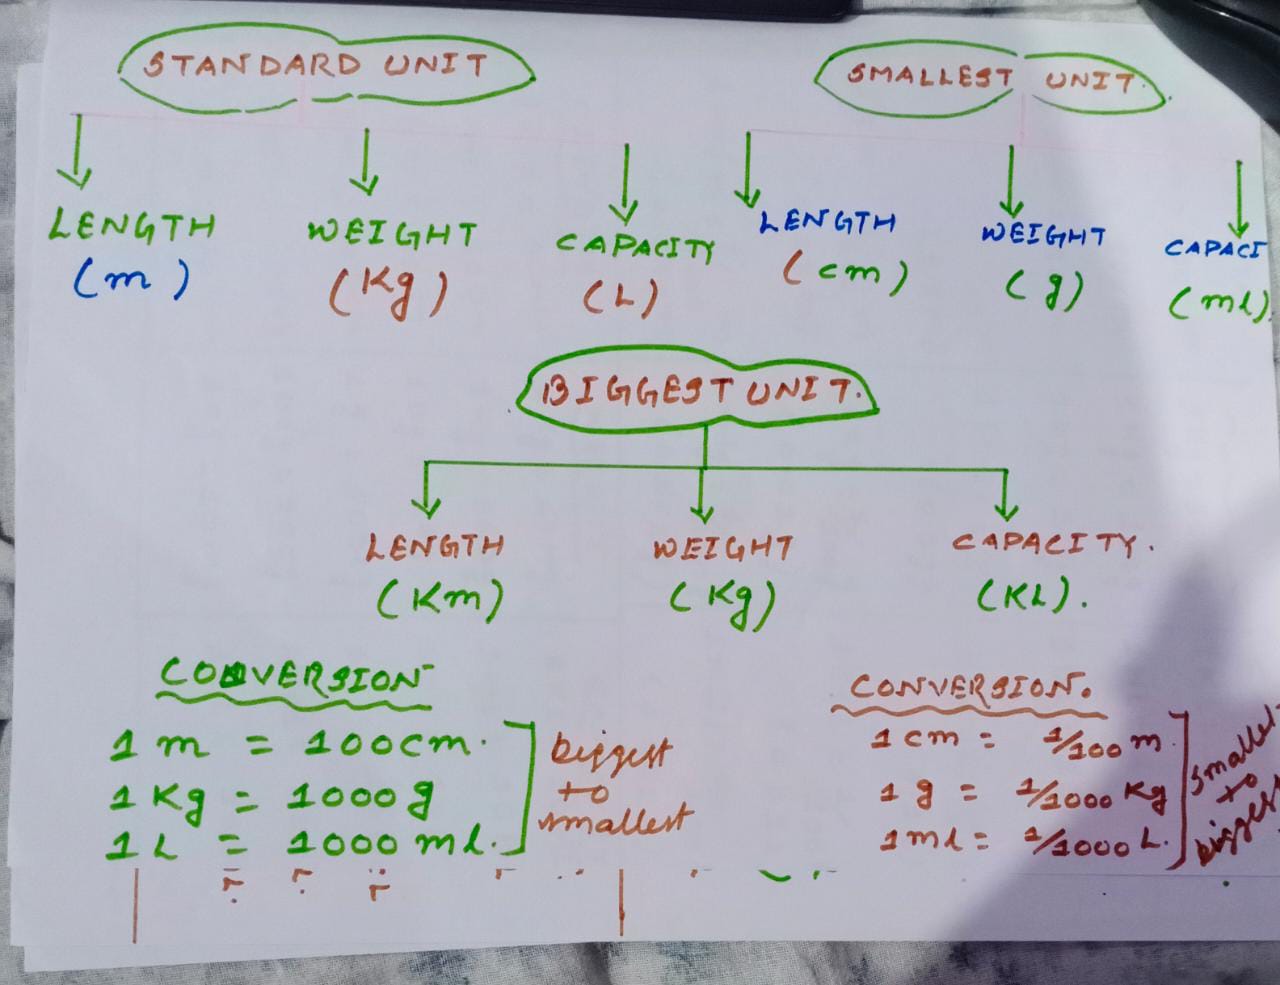 STANDARD UNIT
SMALLEST UNIT.
LENGTH
(m)
WEIGHT
(Kg)
CAPACITY
(L)
LENGTH
(cm)
WEIGHT
(g)
CAPACI
(ml).
BIGGEST UNIT.
LENGTH
(Km)
WEIGHT
(Kg)
CAPACITY.
(KL).
CONVERSION
1 m = 100cm.
1 Kg = 1000 g
1 L = 1000 ml.
biggest
to
smallest
CONVERSION.
1 cm = 1/100 m
1 g = 1/1000 Kg
1 ml = 1/1000 L.
smallest
to
biggest